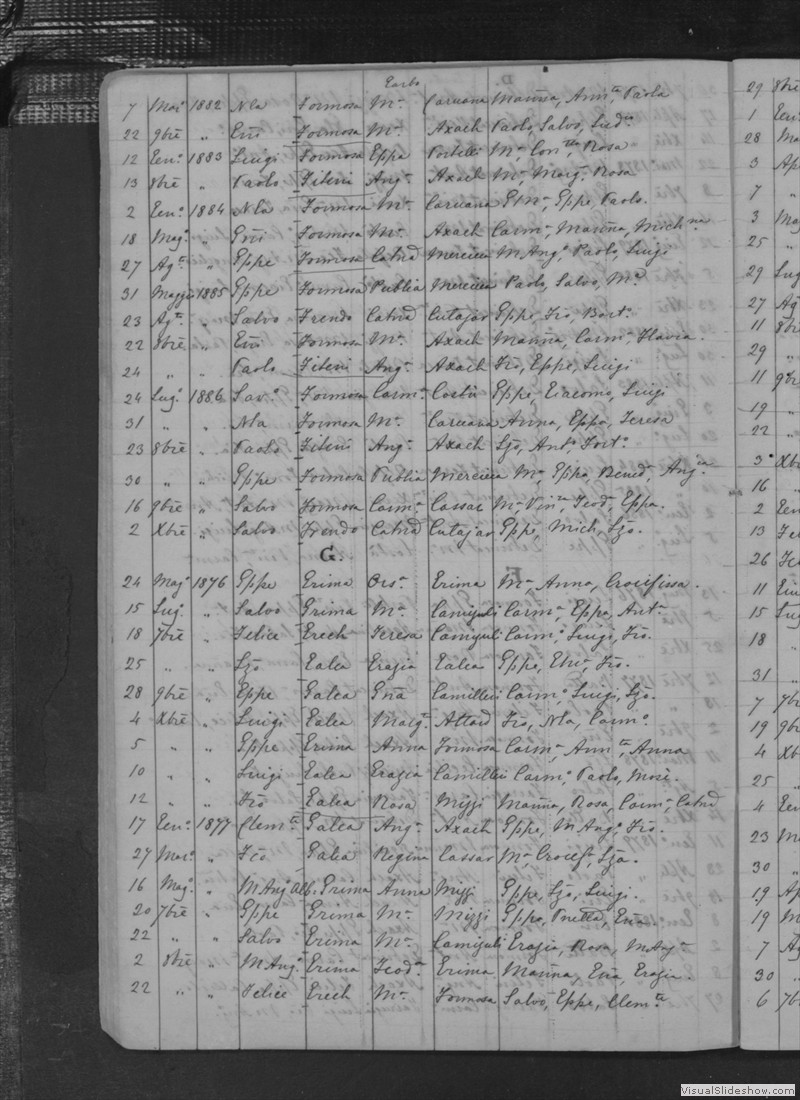 Carbo
7 Mar: 1882 Nla Formosa Ma Caruana Marina, Ann:ta, Paola
22 9bre " Eñi Formosa Ma Axach Paolo, Salvo,
12 Gen: 1883 Luigi Formosa Eppa Portelli Ma Con:tta, Rosa
13 8bre " Paolo Fiteni Anga Axach Ma, Marga, Rosa
2 Gen: 1884 Nla Formosa Ma Caruana Ma, Eppe, Paolo.
18 Mag: " Gñi Formosa Ma Axach Carma, Marina, Mich:na
27 Ag:to " Eppe Formosa Catna Mercieca M. Ango, Paolo, Luigi
31 Maggio 1885 Eppe Formosa Publia Mercieca Paolo, Salvo, Ma
23 Ag:to " Salvo Frendo Catna Cutajar Eppe, Fco, Barto
22 8bre " Eñi Formosa Ma Axach Marina, Carma, Flavia.
24 " " Paolo Fiteni Anga Axach Fco, Eppe, Luigi
24 Lug: 1886 Savo Formosa Carma Costù Eppe, Giacomo, Luigi
31 " " Nla Formosa Ma Caruana Anna, Eppa, Teresa
23 8bre " Paolo Fiteni Anga Axach Lzo, Anto, Forto
30 " " Eppe Formosa Publia Mercieca Ma, Eppa, Bened, Ang:ca
16 9bre " Salvo Formosa Carma Cassar Ma Vin:za, Teod, Eppa.
2 Xbre " Salvo Frendo Catna Cutajar Eppe, Mich, Lzo.
G.
24 Mag: 1876 Eppe Grima Orsa Grima Ma, Anna, Crocifissa.
15 Lug: " Salvo Grima Ma Camiguli Carma, Eppa, Anta
18 7bre " Felice Grech Teresa Camiguli Carmo, Luigi, Fco.
25 " " Lzo Galea Grazia Galea Eppe, Fco.
28 9bre " Eppe Galea Gña Camilleri Carmo, Luigi, Lzo.
4 Xbre " Luigi Galea Marga Attard Fco, Nla, Carmo
5 " " Eppe Grima Anna Formosa Carma, Ann:ta, Anna
10 " " Luigi Galea Grazia Camilleri Carmo, Paolo,
12 " " Fco Galea Rosa Mizzi Marina, Rosa, Carma, Catna
17 Gen: 1877 Clem:te Galea Anga Axach Eppe, M Ango, Fco.
27 Mar: " Fco Galea Regina Cassar Ma, Crocefa, Lza.
16 Mag: " M. Ango Grima Anna Mizzi Eppe, Lzo, Luigi.
20 7bre " Eppe Grima Ma Mizzi Eppa,
22 " " Salvo Grima Ma Camiguli Grazia, Rosa, M Anga
2 8bre " M Ango Grima Teoda Grima Marina, Gña, Grazia.
22 " " Felice Grech Ma Formosa Salvo, Eppe, Clem:te
29 8bre
1 Gen:
28 Ma
3 Ap
7 "
3 Mag
25 "
29 Lug
27 Ag
11 8br
29 "
11 9br
19 "
22 "
3 Xb
16 "
2 Gen
13 Fe
26 Fe
11 Giu
15 Lug
18 "
31 "
7 7br
19 9b
4 Xb
25 "
4 Gen
23 M
30 "
19 Ap
19 M
7 Ag
30 "
6 7b
VisualSlideshow.com